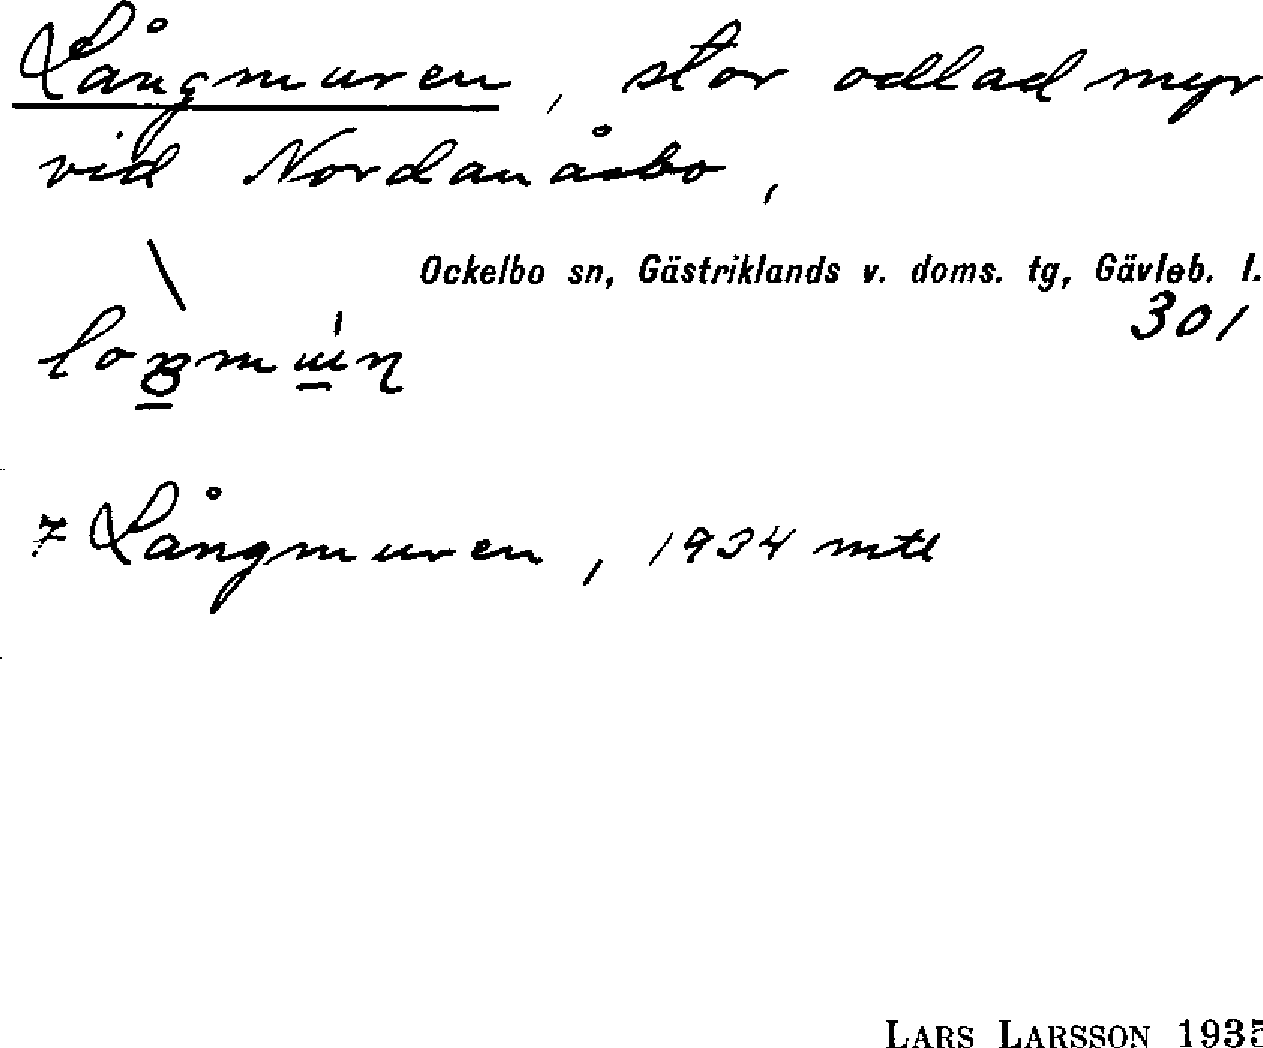 Långmuren, stor odlad myr
vid Nordanåsbo,
Ockelbo sn, Gästriklands v. doms. tg, Gävleb. l.
301
7 Långmuren, 1934 mtl
LARS LARSSON 1935